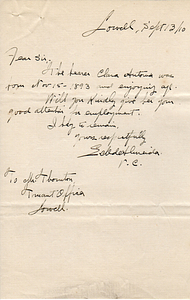 Lowell, Sept 13/10
Dear Sir,
The bearer Clara Antonia was
born Nov. 15 - 1893 and enjoying
Will you kindly give her your
good attention for employment.
I beg to remain
yours respectfully
P. C.
To
Truant Officer
Lowell.